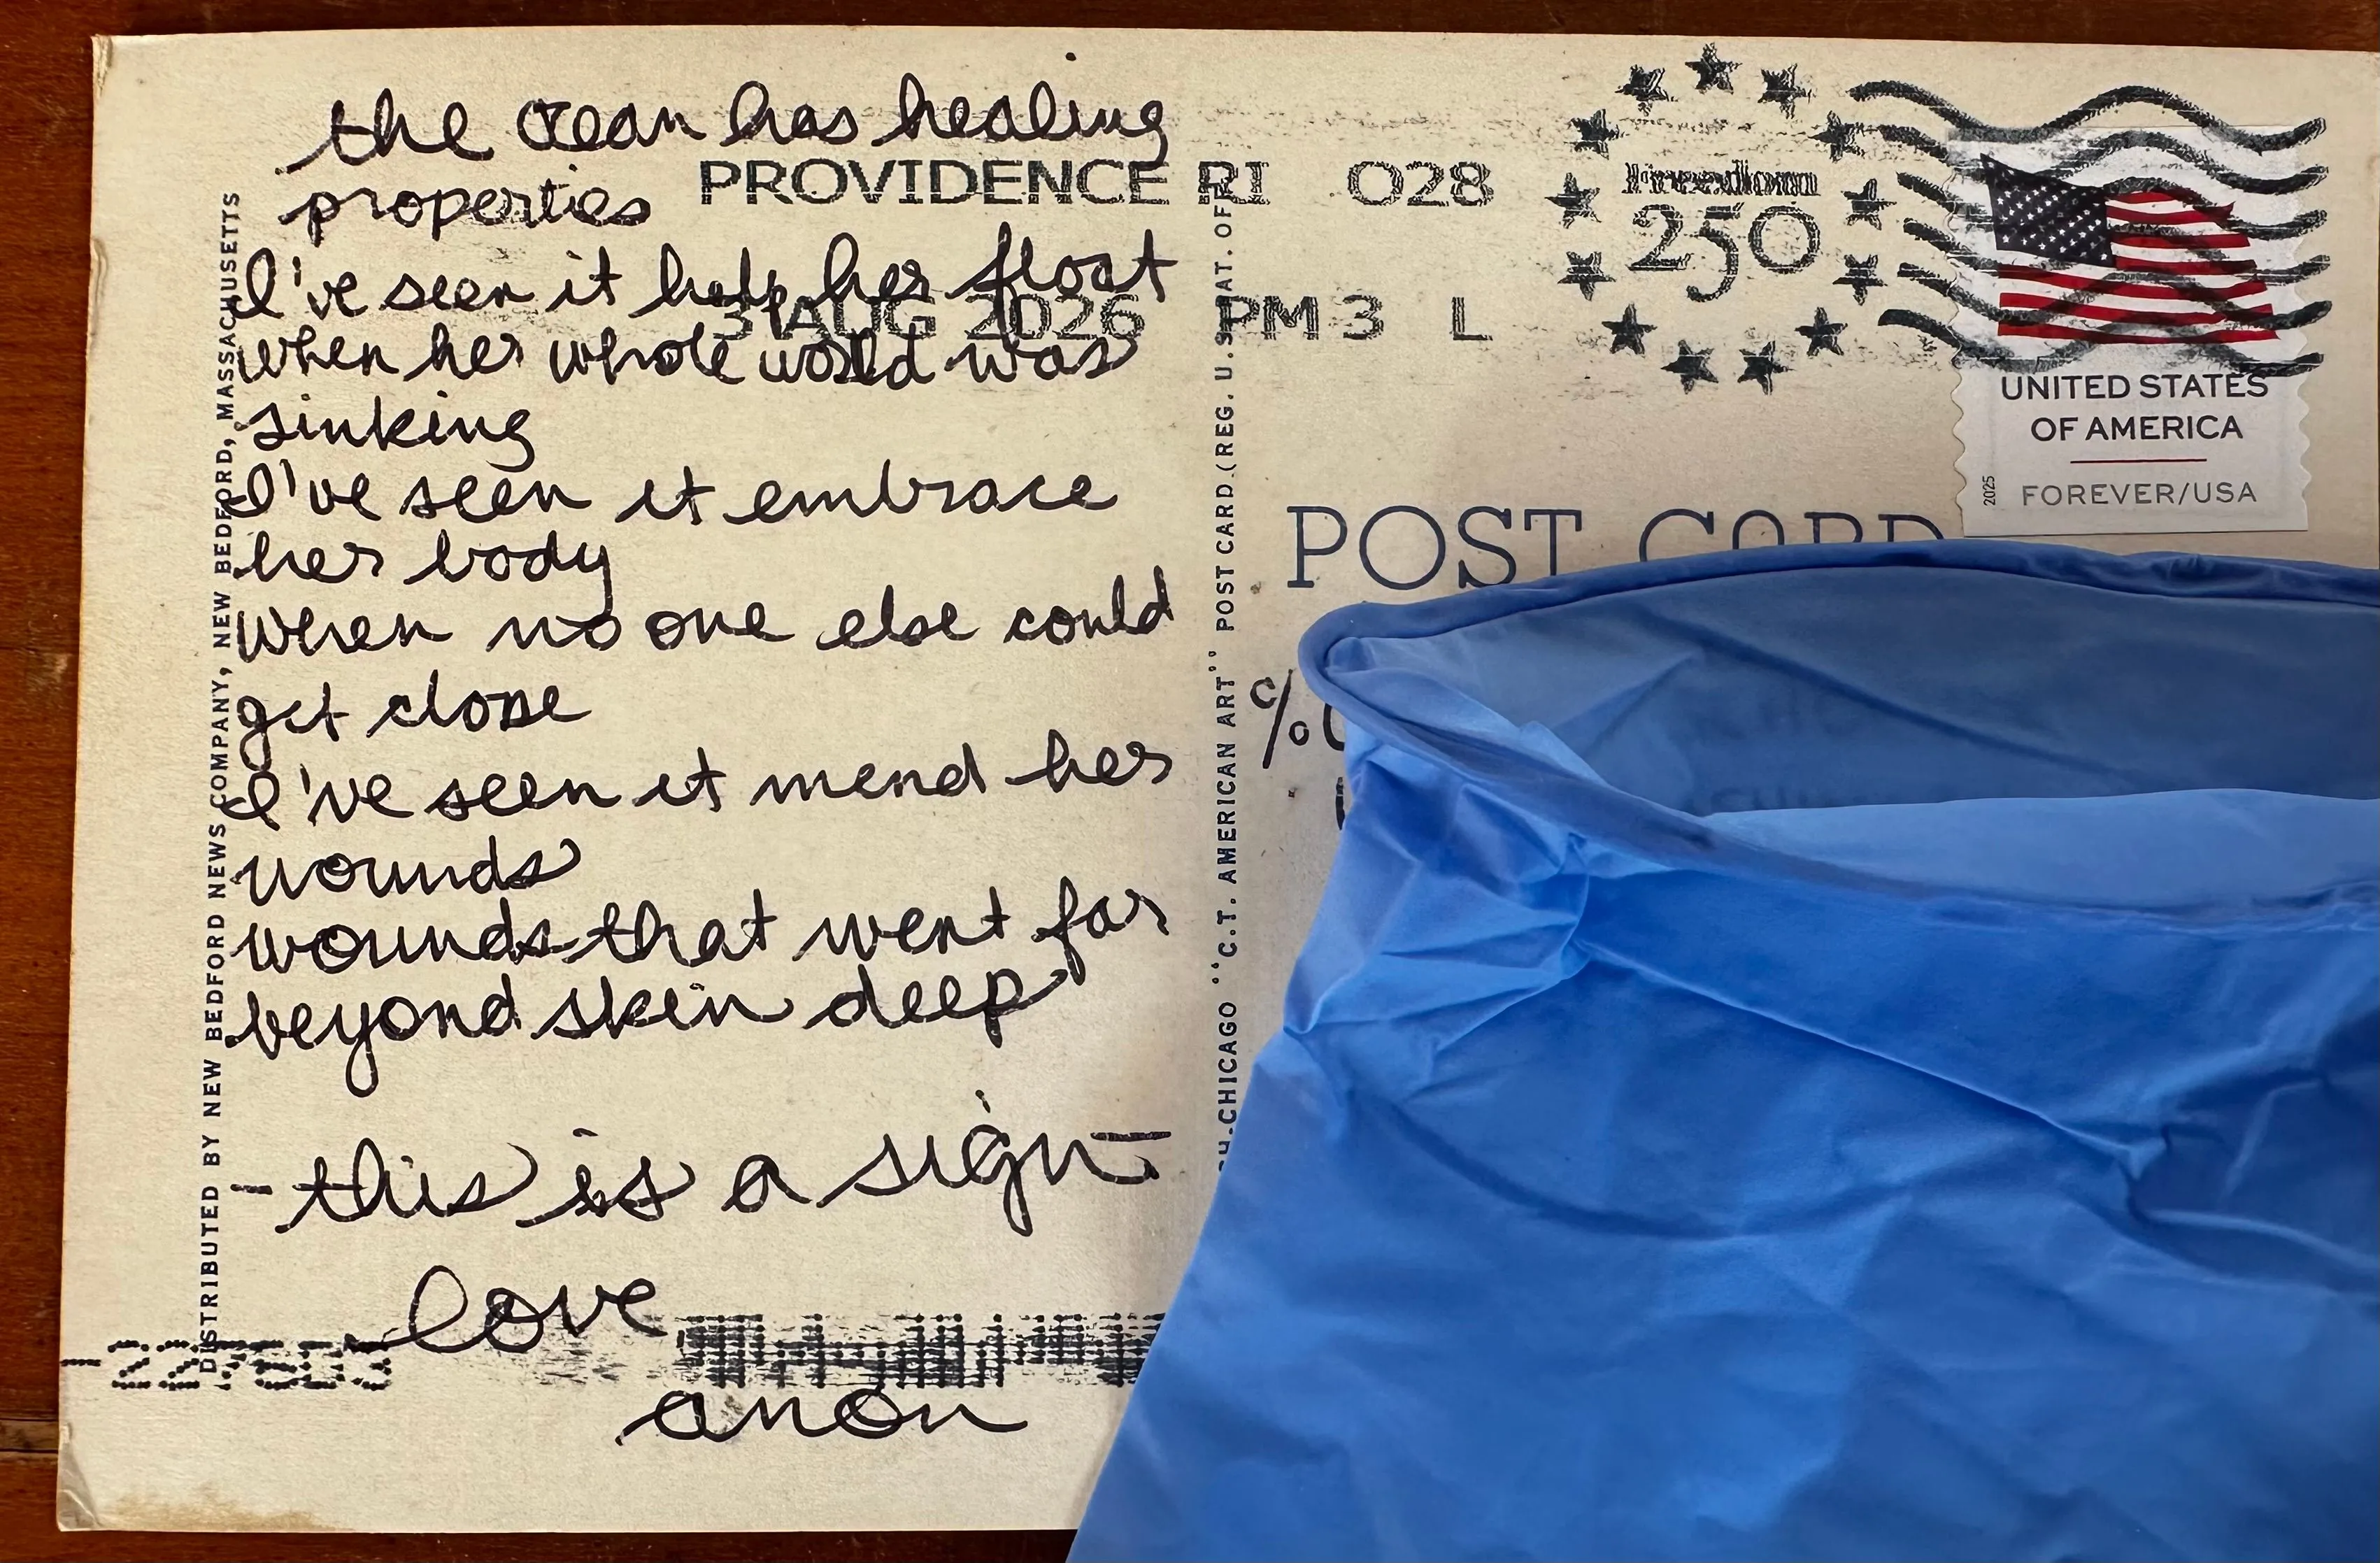 the ocean has healing
properties
I've seen it help her float
when her whole world was
sinking
I've seen it embrace
her body
when no one else could
get close
I've seen it mend her
wounds
wounds that went far
beyond skin deep
- this is a sign -
love,
anon
DISTRIBUTED BY NEW BEDFORD NEWS COMPANY, NEW BEDFORD, MASSACHUSETTS
PROVIDENCE RI 028
3 AUG 2026 PM 3 L
Freedom
250
UNITED STATES
OF AMERICA
FOREVER/USA
2025
POST CARD
CHICAGO "C.T. AMERICAN ART" POST CARD (REG. U.S. PAT. OFF.
c/o